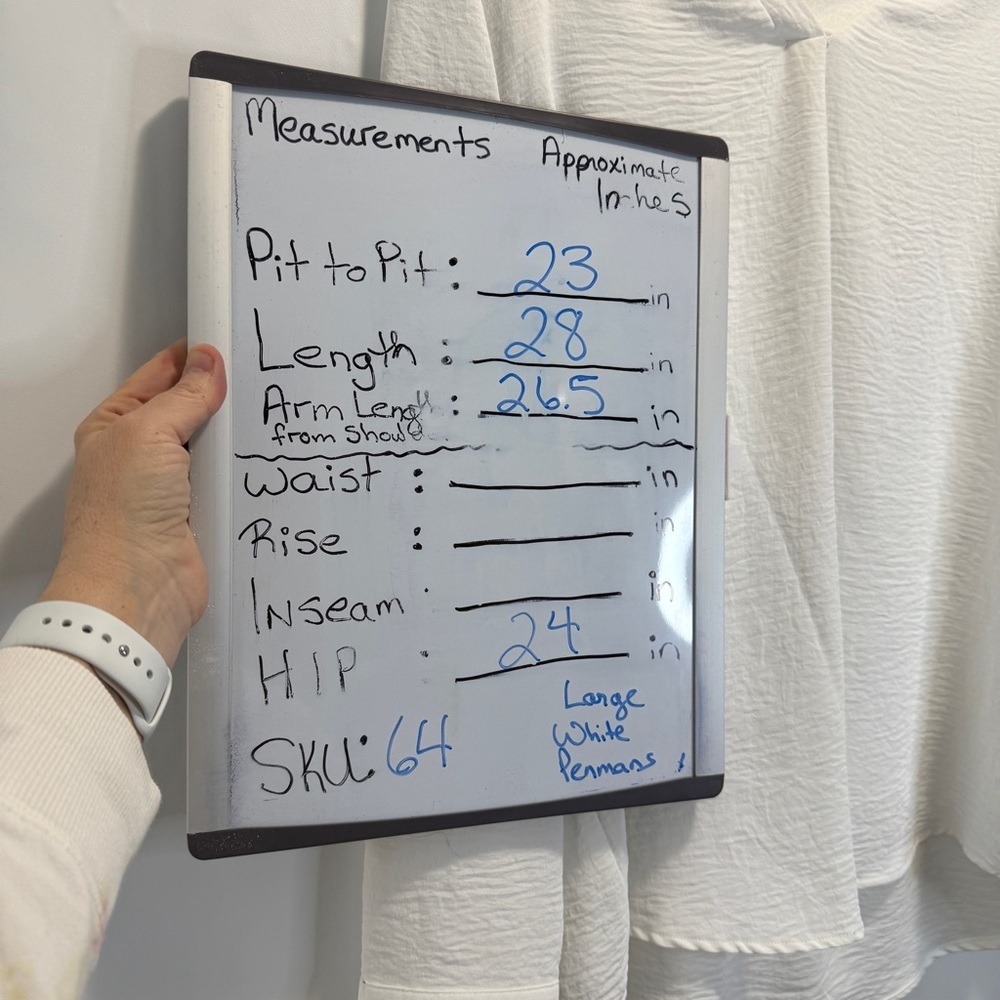 Measurements
Approximate
Inches
Pit to Pit : 23 in
Length : 28 in
Arm Length : 26.5 in
from Shou
Waist : in
Rise : in
Inseam in
HIP 24 in
SKU: 64
Large
White
Penmans